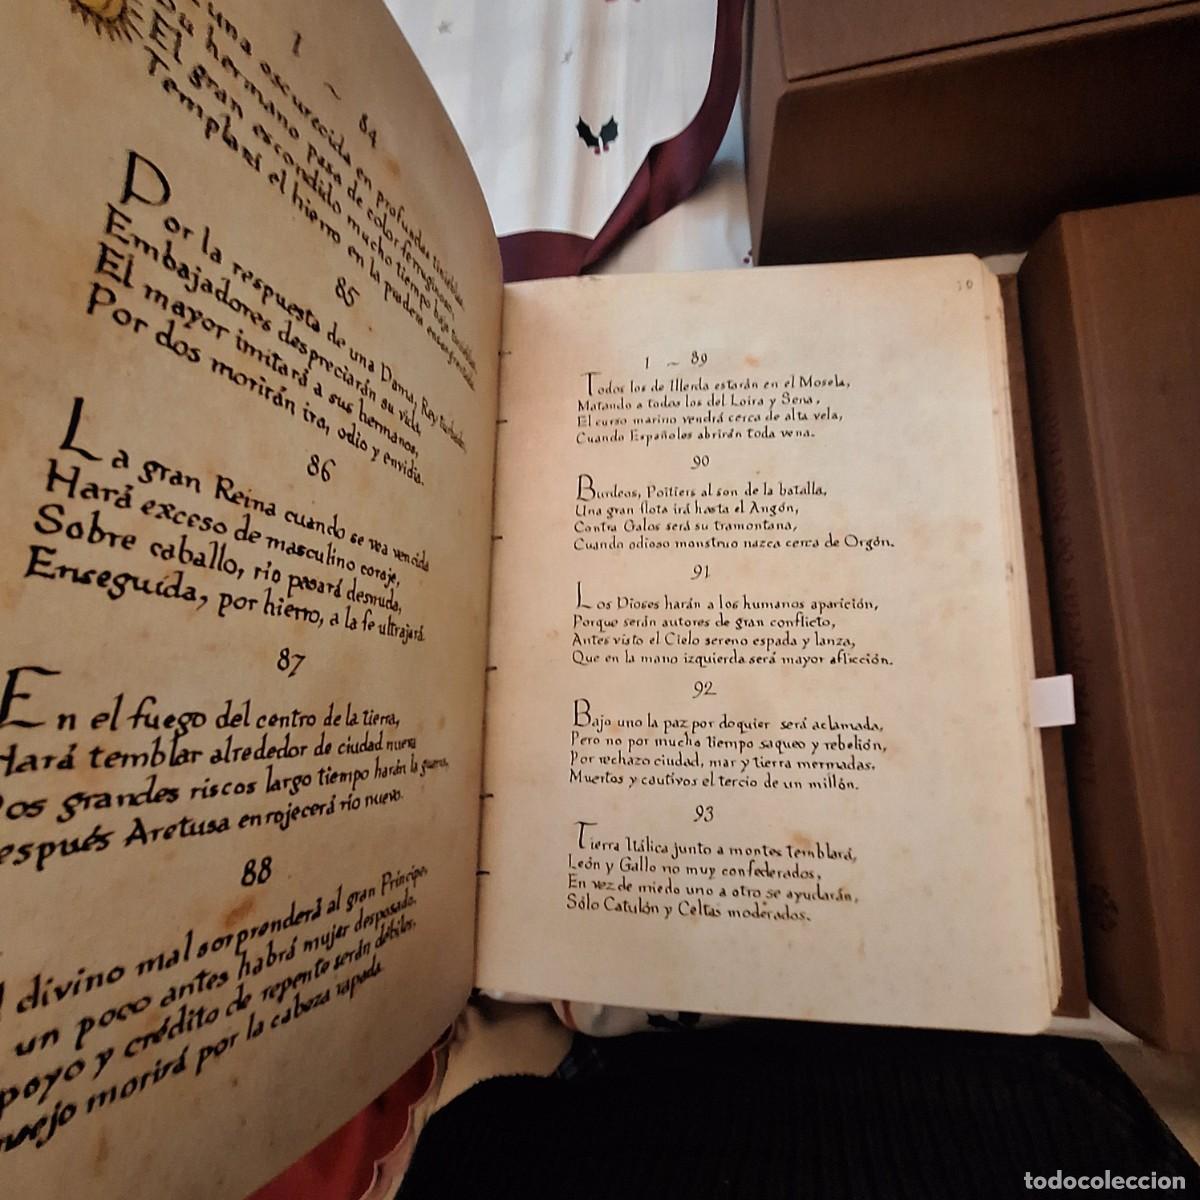 1 ~ 84
una oscurecida en profundas tinieblas,
Su hermano pasa de color ferruginoso,
El gran escondido mucho tiempo bajo tinieblas,
Templará el hierro en la
85
Por la respuesta de una Dama, Rey turbado,
Embajadores despreciarán su vida,
El mayor imitará a sus hermanos,
Por dos morirán ira, odio y envidia.
86
La gran Reina cuando se vea vencida
Hará exceso de masculino coraje,
Sobre caballo, río pasará desnuda,
Enseguida, por hierro, a la fe ultrajará.
87
En el fuego del centro de la tierra,
Hará temblar alrededor de ciudad nueva
Dos grandes riscos largo tiempo harán la guerra,
Después Aretusa enrojecerá río nuevo.
88
divino mal sorprenderá al gran Príncipe,
un poco antes habrá mujer desposado,
poyo y crédito de repente serán débiles,
morirá por la cabeza rapada.
30
1 ~ 89
Todos los de Illerda estarán en el Mosela,
Matando a todos los del Loira y Sena,
El curso marino vendrá cerca de alta vela,
Cuando Españoles abrirán toda vena.
90
Burdeos, Poitiers al son de la batalla,
Una gran flota irá hasta el Angón,
Contra Galos será su tramontana,
Cuando odioso monstruo nazca cerca de Orgón.
91
Los Dioses harán a los humanos aparición,
Porque serán autores de gran conflicto,
Antes visto el Cielo sereno espada y lanza,
Que en la mano izquierda será mayor aflicción.
92
Bajo uno la paz por doquier será aclamada,
Pero no por mucha tiempo saqueo y rebelión,
Por rechazo ciudad, mar y tierra mermadas,
Muertos y cautivos el tercio de un millón.
93
Tierra Itálica junto a montes temblará,
León y Gallo no muy confederados,
En vez de miedo uno a otro se ayudarán,
Sólo Catulón y Celtas moderados.
todocoleccion